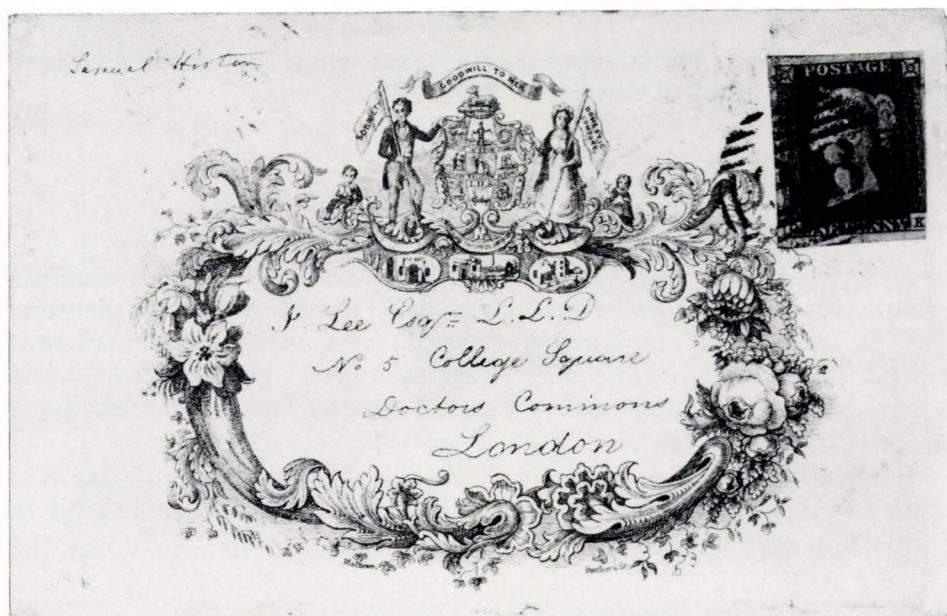 Samuel
GOODWILL TO MEN
SOBRIETY
DOMESTIC
POSTAGE
ONE PENNY
K
J. Lee Esqre L.L.D
No 5 College Square
Doctors Commons
London